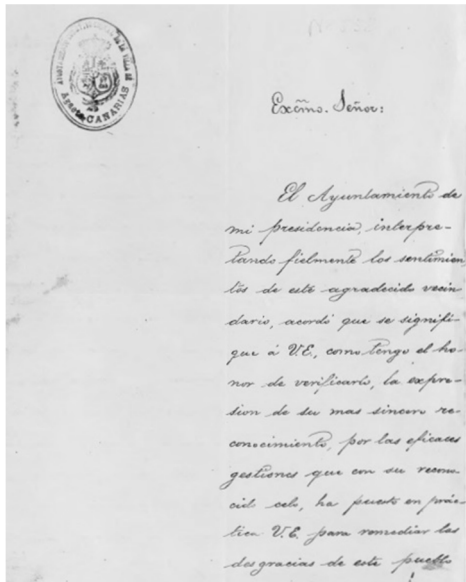 CANARIAS
Excmo. Señor:
El Ayuntamiento de
mi presidencia, interpre-
tando fielmente los sentimien
tos de este agradecido vecin
dario, acordó que se signifi-
que á V.E., como tengo el ho
nor de verificarlo, la expre-
sion de su mas sincero re-
conocimiento, por las eficaces
gestiones que con su recono
cido celo, ha puesto en prác
tica V.E. para remediar las
desgracias de este pueblo